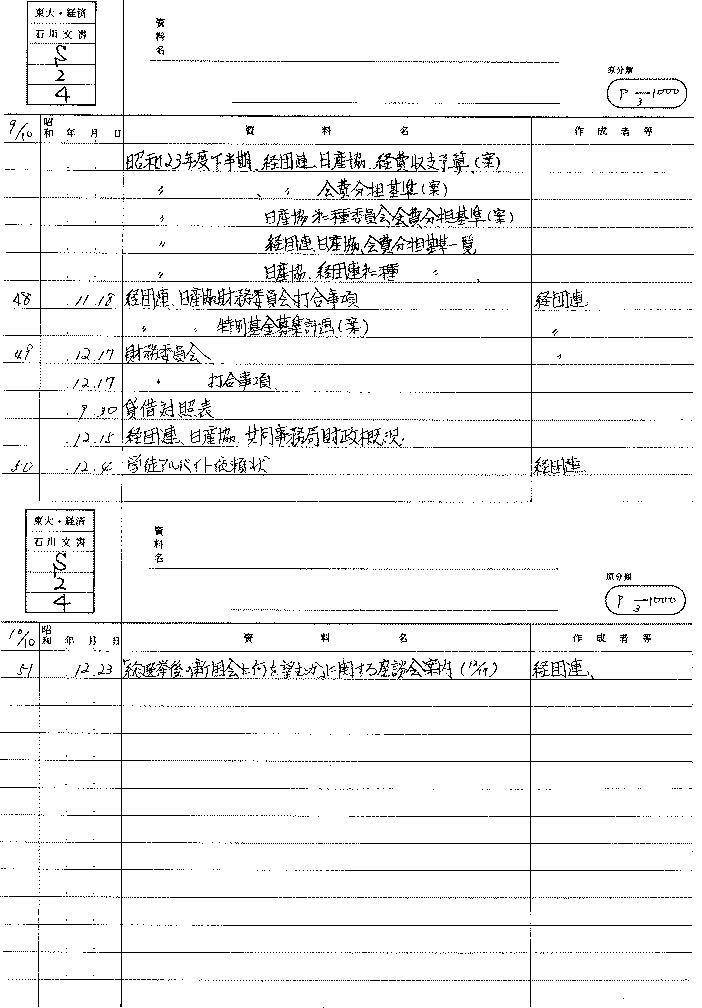 東大・経済
石川文書
S
2
4
資料名
原分類
P—1000
3
9/10 昭和 年 月 日 資料名 作成者等
昭和23年度下半期、経団連、日産協、経費収支予算(案)
〃 、 〃 会費分担基準(案)
〃 日産協 第二種委員会会費分担基準(案)
〃 経団連、日産協、会費分担基準一覧
〃 日産協、経団連第二種 〃
48 11.18 経団連、日産協財務委員会打合事項 経団連
〃 、 特別基金募集計画(案) 〃
49 12.17 財務委員会 〃
12.17 〃 打合事項
9.30 貸借対照表
12.15 経団連、日産協、共同事務局財政概況
50 12.4 学徒アルバイト依頼状 経団連
東大・経済
石川文書
S
2
4
資料名
原分類
P—1000
3
10/10 昭和 年 月 日 資料名 作成者等
51 12.23 「総選挙後の新国会に何を望むか」に関する座談会案内 経団連